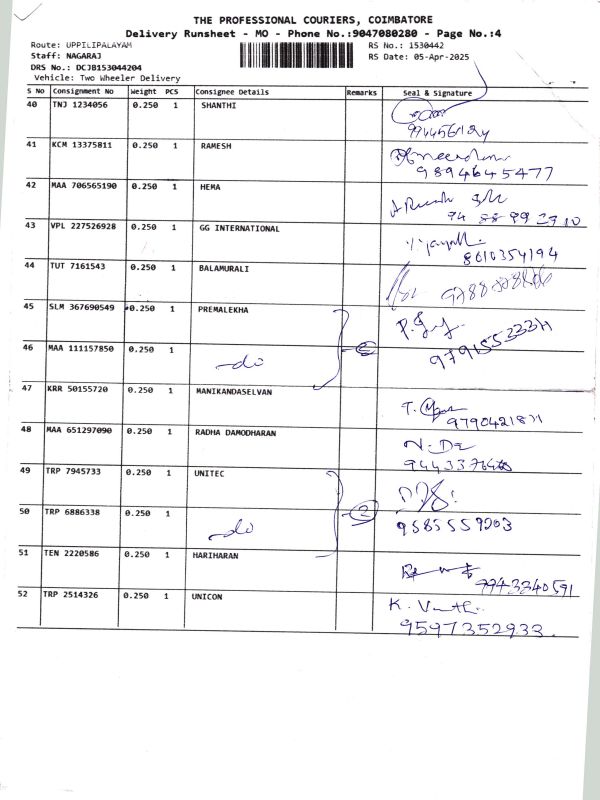 THE PROFESSIONAL COURIERS, COIMBATORE
Delivery Runsheet - MO - Phone No.:9047080280 - Page No.:4
Route: UPPILIPALAYAM RS No.: 1530442
Staff: NAGARAJ RS Date: 05-Apr-2025
DRS No.: DCJB153044204
Vehicle: Two Wheeler Delivery
S No Consignment No Weight PCS Consignee Details Remarks Seal & Signature
40 TNJ 1234056 0.250 1 SHANTHI
41 KCM 13375811 0.250 1 RAMESH
9894645477
42 MAA 706565190 0.250 1 HEMA
43 VPL 227526928 0.250 1 GG INTERNATIONAL
8610354194
44 TUT 7161543 0.250 1 BALAMURALI
45 SLM 367690549 0.250 1 PREMALEKHA
46 MAA 111157850 0.250 1 -do
47 KRR 50155720 0.250 1 MANIKANDASELVAN
48 MAA 651297090 0.250 1 RADHA DAMODHARAN
49 TRP 7945733 0.250 1 UNITEC
50 TRP 6886338 0.250 1 -do 2
51 TEN 2220586 0.250 1 HARIHARAN
9943340591
52 TRP 2514326 0.250 1 UNICON
9597352933